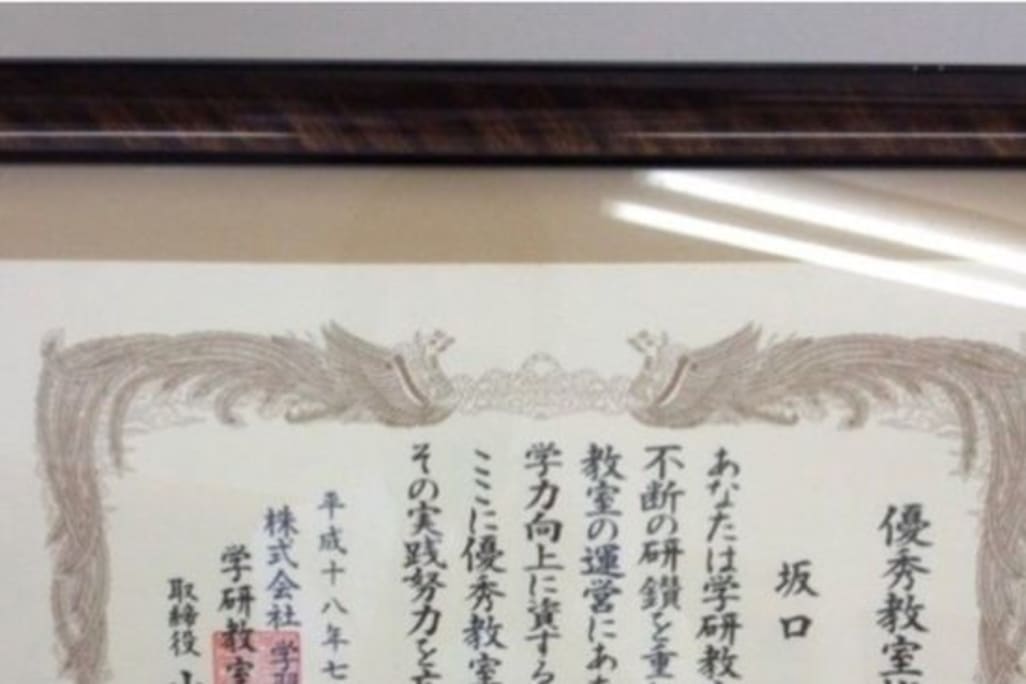 優秀教室
坂口
あなたは学研教
不断の研鑽を重
教室の運営にあ
学力向上に資する
ここに優秀教室
その実践努力を
平成十八年七
株式会社 学
学研教室
取締役